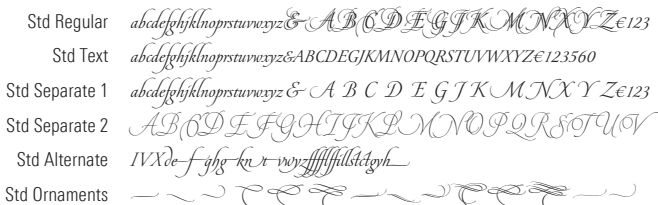 Std Regular abcdefghjklnoprstuvwxyz& ABCDEGJKMNXYZ€123
Std Text abcdefghjklnoprstuvwxyz&ABCDEGJKMNOPQRSTUVWXYZ€123560
Std Separate 1 abcdefghjklnoprstuvwxyz& A B C D E G J K M N X Y Z€123
Std Separate 2 ABCDEFGHIJKLMNOPQRSTUV
Std Alternate IVXde f
Std Ornaments